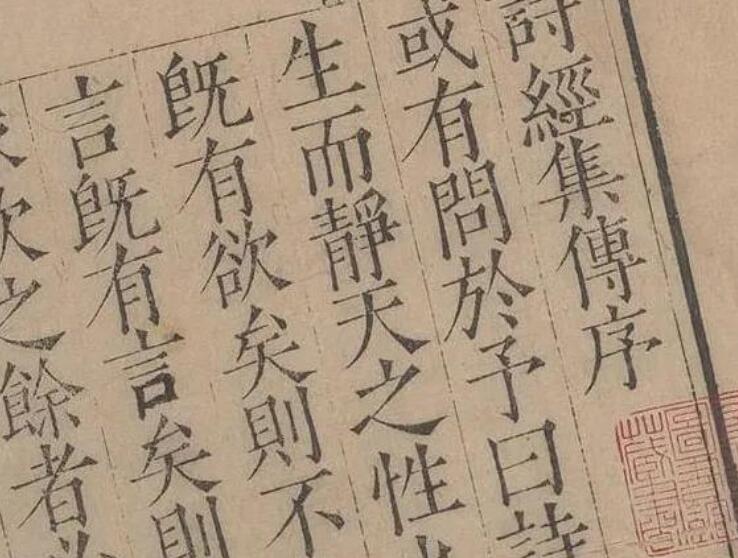 詩經集傳序
或有問於予曰詩
生而靜天之性
既有欲矣則不
言既有言矣則
欬之餘者